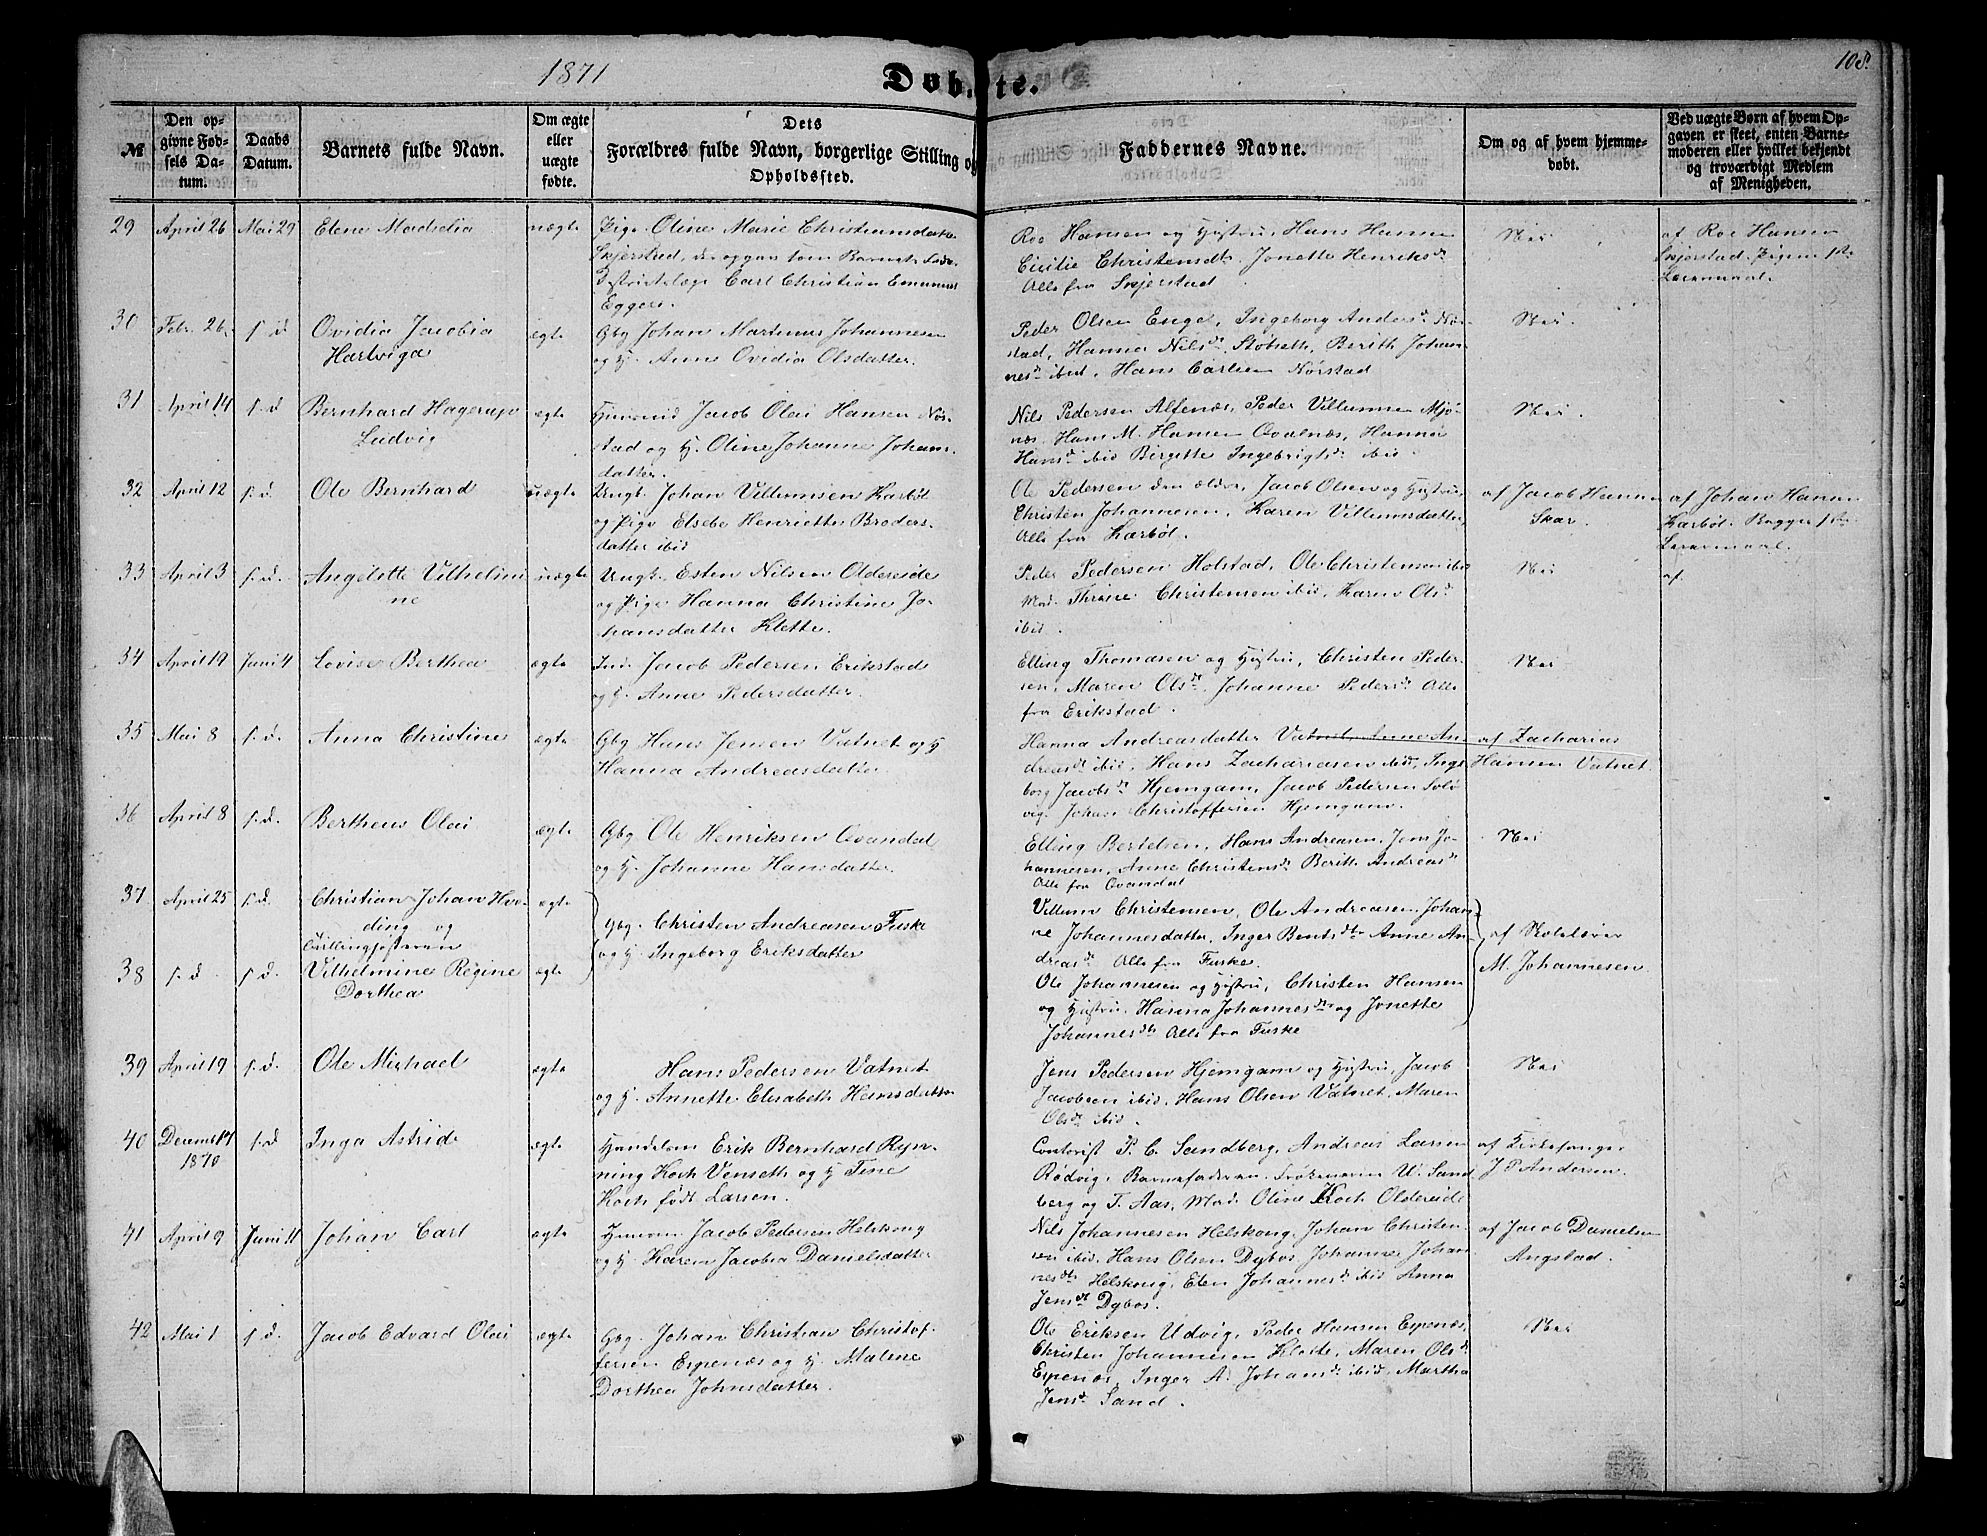 1871
Døbte.
108.
№
Den op-
givne Fød-
sels Da-
tum.
Daabs
Datum.
Barnets fulde Navn.
Om ægte
eller
uægte
fødte.
Dets
Forældres fulde Navn, borgerlige Stilling og
Opholdssted.
Faddernes Navne.
Om og af hvem hjemme-
døbt.
Ved uægte Børn af hvem Op-
gaven er skeet, enten Barne-
moderen eller hvilket bekjendt
og troværdigt Medlem
af Menigheden.
29 April 26 Mai 29 Elene Madselia uægte Pige Oline Marie Christiansdatter
Skjerstad, der opgav som Barnets Fader
Distriktslæge Carl Christian Emanuel
Eggers.
Roe Hansen og Hustru, Hans Hansen
Cicilie Christensdt. Jonette Henriksd
Alle fra Skjerstad
Nei
af Roe Hansen
Skjerstad. Pigens 1ste
Leiermaal.
30 Febr. 26 s. d. Ovidia Jacobia
Hartviga
ægte Gbg Johan Martinus Johannesen
og H. Anne Ovidia Olsdatter.
Peder Olsen Engel, Ingeborg Andersd Nør-
stad, Hanna Nilsdt. Støbseth, Berith Johan-
nesd ibid, Hans Carlsen Nørstad
Nei.
31 April 14 s. d Bernhard Hagerup
Ludvig
ægte Huusmd Jacob Olai Hansen Nør-
stad og H. Oline Johanne Johans-
datter.
Nils Pedersen Alfenæs, Peder Villumsen Mjø-
næs. Hans M. Hansen Qvalnæs, Hanna
Hansd ibid Birgitte Ingebrigtsd. ibid.
Nei.
32 April 12 s. d. Ole Bernhard uægte Ungk. Johan Villumsen Karbøl
og Pige Elsebe Henriette Broders-
datter ibid
Ole Pedersen den ældre, Jacob Olsen og Hustru,
Christen Johannesen, Karen Villumsdatter,
Alle fra Karbøl.
af Jacob Hansen
Skar.
af Johan Hansen
Karbøl. Begges 1ste
Leiermaal.
33 April 3 s. d. Angelette Vilhelmi
ne
uægte Ungk. Esten Nilsen Oldereide
og Pige Hanna Christine Jo-
hansdatter Klette.
Peder Pedersen Holstad, Ole Christensen ibid
Mad. Thrine Christensen ibid, Karen Olsd
ibid.
Nei
af.
34 April 19 Juni 4 Lovise Berthea ægte Ind. Jacob Pedersen Erikstad
og H. Anne Pedersdatter.
Elling Thomasen og Hustru, Christen Peder-
sen, Maren Olsdt. Johanne Pedersd. Alle
fra Erikstad.
Nei
35 Mai 8 s. d. Anna Christine ægte Gbg Hans Jensen Vatnet og H
Hanna Andreasdatter
Hanna Andreasdatter Vatnet Anne An-
dreasd ibid, Hans Zachariasen ibid, Inge-
borg Jacobsd Hjemgam, Jacob Pedersen Solø
vig. Johan Christoffersen Hjemgam.
af Zacharias
Hansen Vatnet.
36 April 8 s. d. Bertheus Olai ægte Gbg Ole Henriksen Qvandal
og H. Johanne Hansdatter.
Elling Bertelsen, Hans Andreasen, Jens Jo-
hannesen, Anne Christensd Berith Andreasd
Alle fra Qvandal
Nei
37 April 25 s. d. Christian Johan Hve-
ding og
Tvillingsøsteren
ægte Gbg. Christen Andreasen Fuske
og H. Ingeborg Eriksdatter
Villum Christensen, Ole Andreasen, Johan-
ne Johannesdatter, Inger Bentsdtr Anne An-
dreasd Alle fra Fuske.
af Skolelærer
M. Johannesen
38 s. d s. d. Vilhelmine Regine
Dorthea
ægte
Ole Johannesen og Hustru, Christen Hansen
og Hustru, Hanna Johannesdtr og Jonette
Johannesdtr Alle fra Fuske
39 April 9 s. d. Ole Mikhael ægte Hans Pedersen Vatnet
og H. Annette Elisabeth Hemsdatter
Jens Pedersen Hjemgam og Hustru, Jacob
Jacobsen ibid, Hans Olsen Vatnet, Maren
Olsdt ibid.
Nei
40 Decemb 17
1870
s. d Inga Astride ægte Handelsm Erik Bernhard Ryn-
ning Koch Venseth og H Tine
Koch født Larsen.
Contorist P. C. Sandberg, Andreas Larsen
Rødvig, Barnefaderen Frøknerne U. Sand
berg og T. Aas, Mad. Oline Koch Oldereide
af Kirkesanger
J P Andersen.
41 April 9 Juni 11 Johan Carl ægte Huusm Jacob Pedersen Helskong
og H. Karen Jacobia Danielsdatter
Nils Johannesen Helskong, Johan Christen-
sen ibid, Hans Olsen Dybos, Johanne Johan
nesdtr Helskong, Elen Johannesd ibid Anna
Jensdt Dybos.
af Jacob Danielsen
Angstad.
42 Mai 1 s. d. Jacob Edvard Olai ægte Gbg. Johan Christian Christof-
fersen Espenæs og H. Malene
Dorthea Johnsdatter.
Ole Eriksen Udvig, Peder Hansen Espenæs,
Christen Johannesen Klette, Maren Olsdt
Espenæs, Inger A. Johansd ibid, Martha
Jensd. Sand.
Nei